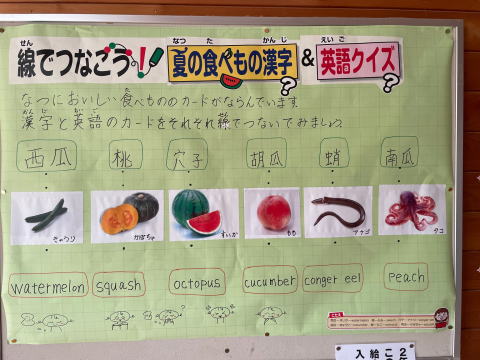 線でつなごう!!
せん
夏の食べもの漢字
なつ た かんじ
?
&
英語クイズ
えいご
?
なつにおいしい食べもののカードがならんでいます。
漢字と英語のカードをそれぞれ線でつないでみましょう。
西瓜 桃 穴子 胡瓜 蛸 南瓜
きゅうり かぼちゃ すいか もも アナゴ タコ
watermelon squash octopus cucumber conger eel peach
入給こ2